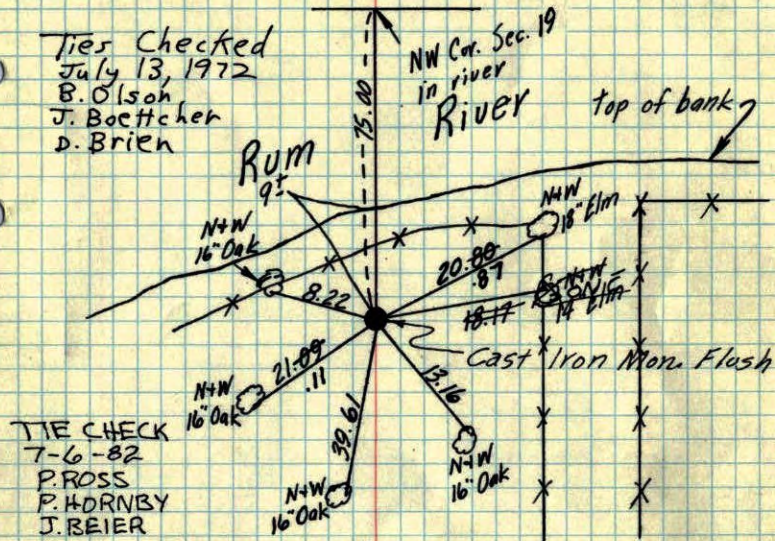 Ties Checked
July 13, 1972
B. Olson
J. Boettcher
D. Brien
NW Cor. Sec. 19
in river
River
top of bank
75.00
Rum
9±
N+W
16" Oak
N+W
18" Elm
20.80
.87
8.22
N+W
GONE
14" Elm
18.17
Cast Iron Mon. Flush
21.09
.11
N+W
16" Oak
13.16
39.61
N+W
16" Oak
N+W
16" Oak
TIE CHECK
7-6-82
P. ROSS
P. HORNBY
J. BEIER